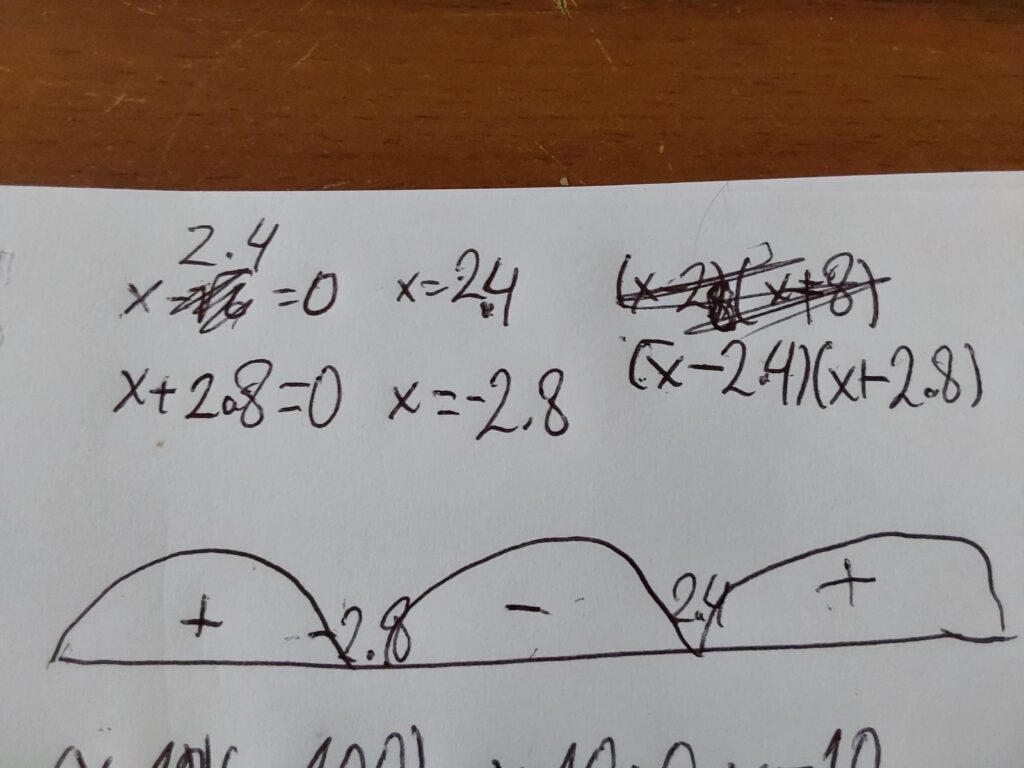 x-2.4=0 x=2.4
x+2.8=0 x=-2.8 (x-2.4)(x+2.8)
+ -2.8 - 2.4 +